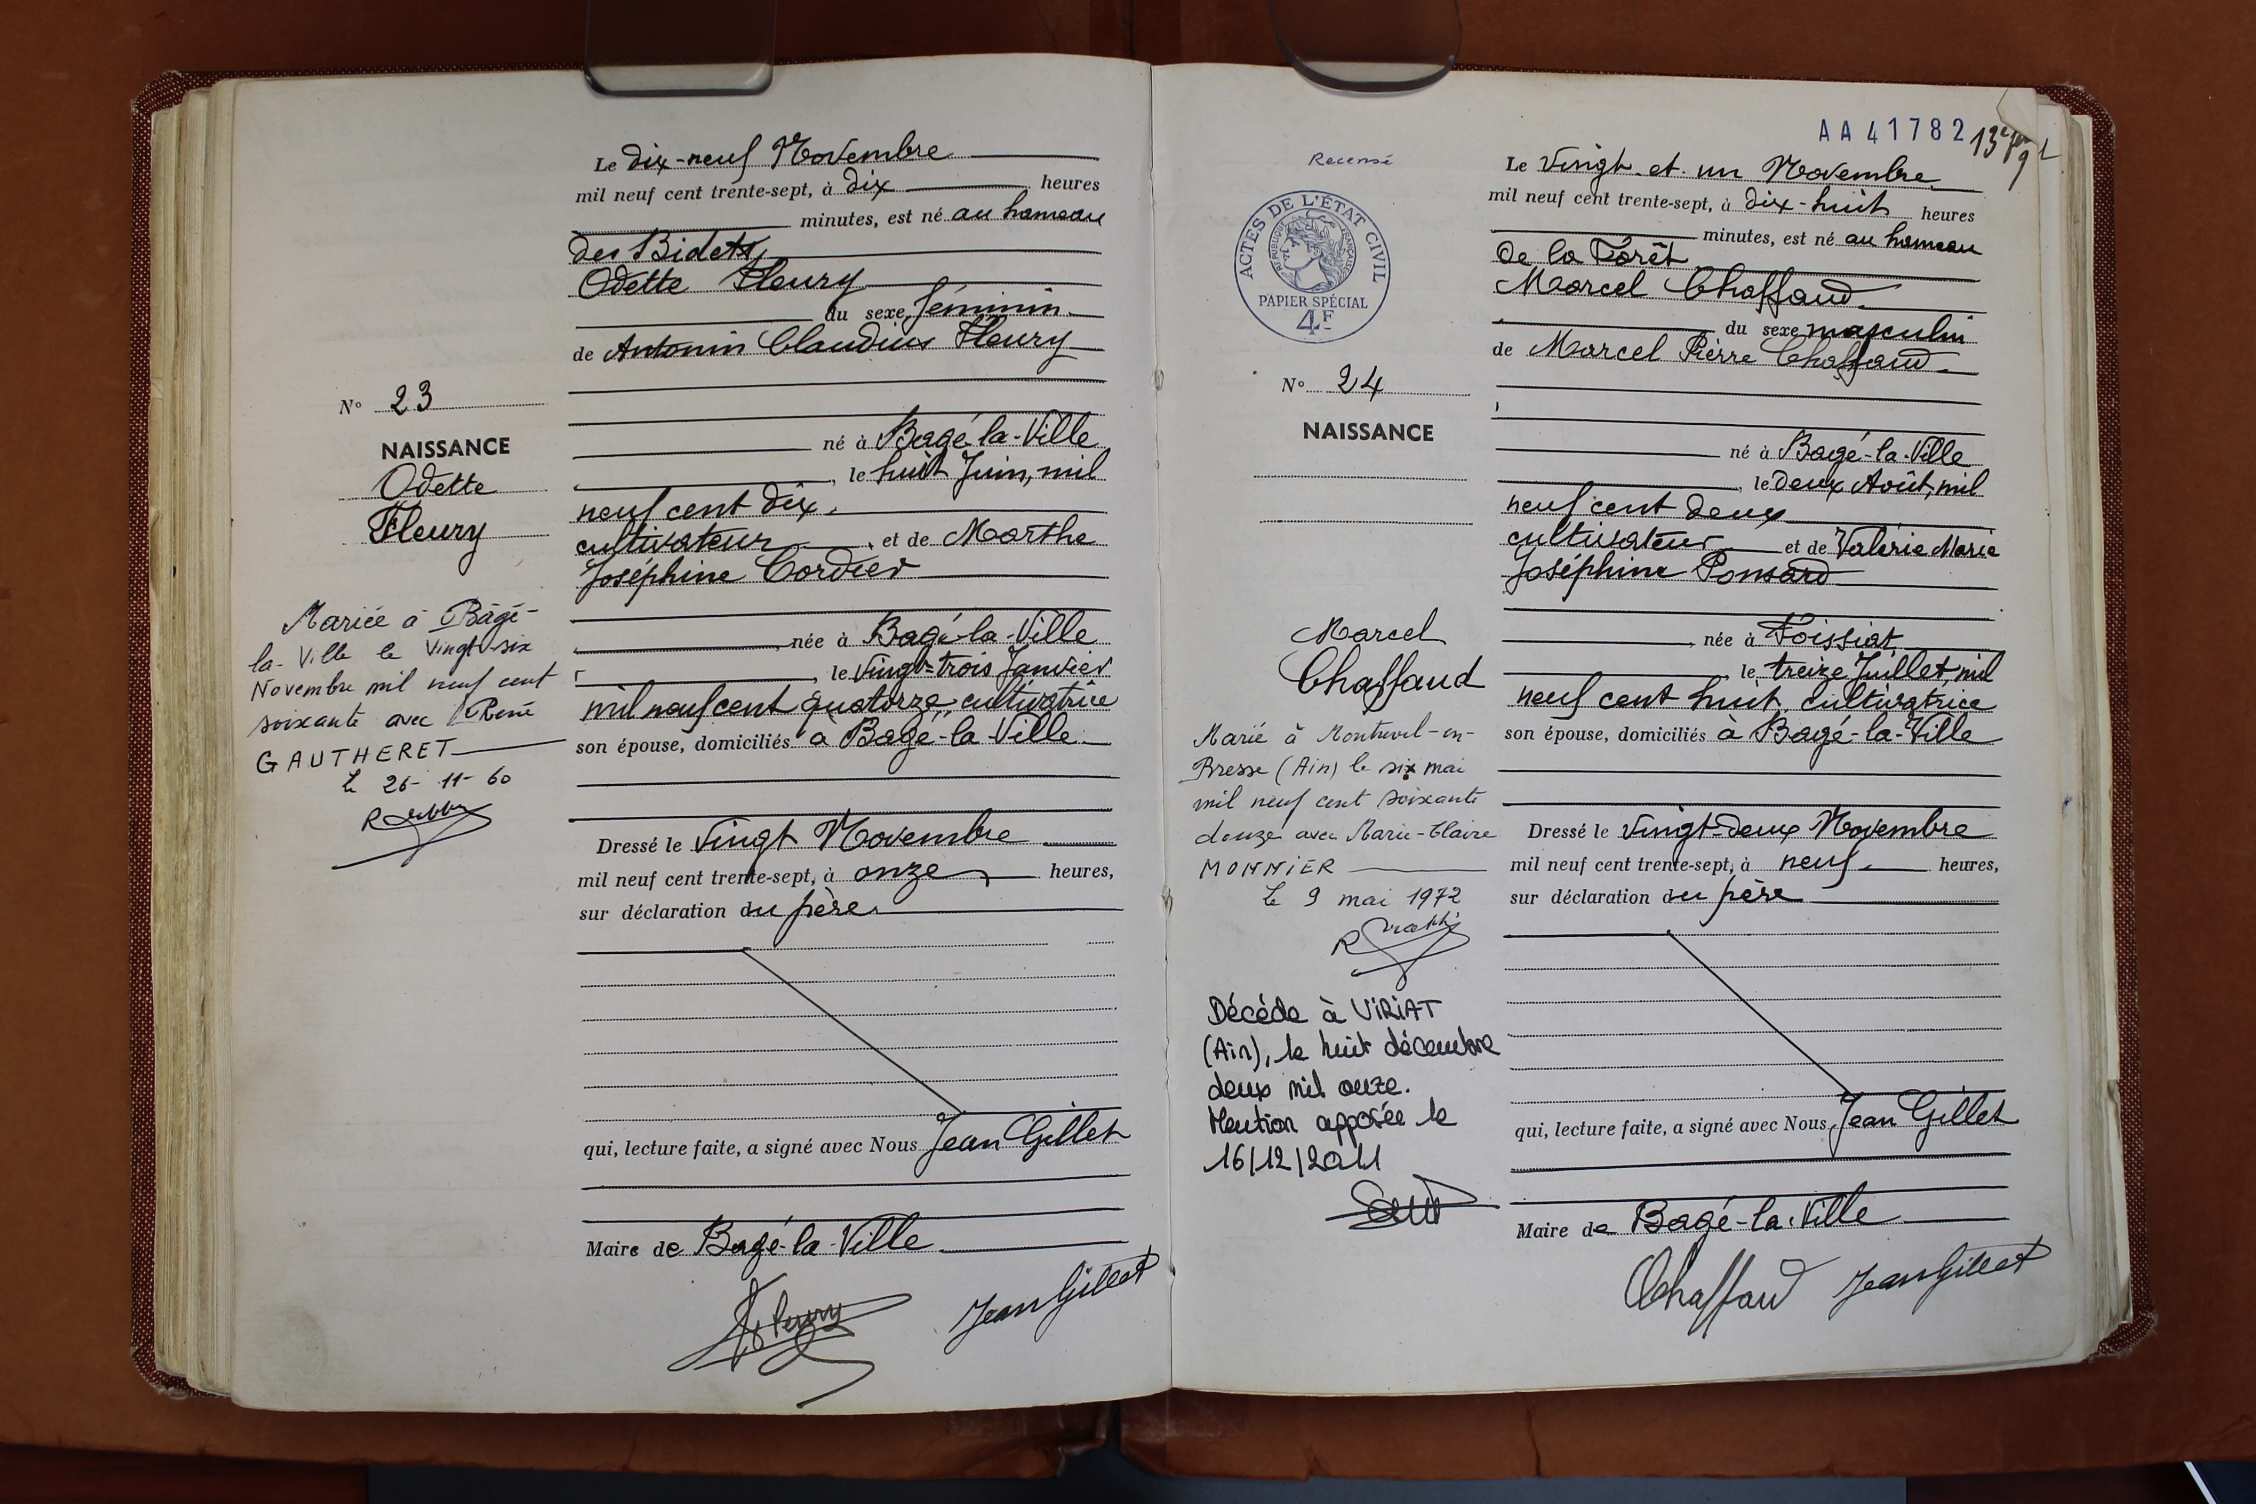 Le dix-neuf Novembre
mil neuf cent trente-sept, à dix heures
minutes, est né au hameau
des Bidets
Odette Fleury
du sexe féminin
de Antonin Claudius Fleury
né à Bagé-la-Ville
, le huit Juin, mil
neuf cent dix,
cultivateur, et de Marthe
Joséphine Cordier
, née à Bagé-la-Ville
, le vingt-trois Janvier
mil neuf cent quatorze, cultivatrice
son épouse, domiciliés à Bagé-la-Ville
Dressé le vingt Novembre
mil neuf cent trente-sept, à onze heures,
sur déclaration du père
qui, lecture faite, a signé avec Nous Jean Gillet
Maire de Bagé-la-Ville
Fleury Jean Gillet
N° 23
NAISSANCE
Odette
Fleury
Mariée à Bâgé-
la-Ville le vingt-six
Novembre mil neuf cent
soixante avec René
GAUTHERET
Le 26-11-60
AA41782
13e
Recensé
ACTES DE L'ÉTAT CIVIL
RÉPUBLIQUE FRANÇAISE
PAPIER SPÉCIAL
4F
N° 24
NAISSANCE
Marcel
Chaffaud
Marié à Montrevel-en-
Bresse (Ain) le six mai
mil neuf cent soixante
douze avec Marie-Claire
MONNIER
Le 9 mai 1972
Décédé à VIRIAT
(Ain), le huit décembre
deux mil onze.
Mention apposée le
16/12/2011
Le vingt-et-un Novembre
mil neuf cent trente-sept, à dix-huit heures
minutes, est né au hameau
de la Forêt
Marcel Chaffaud
du sexe masculin
de Marcel Pierre Chaffaud
né à Bagé-la-Ville
, le deux Août, mil
neuf cent deux
cultivateur et de Valérie Marie
Joséphine Ponsard
, née à Foissiat
, le treize Juillet, mil
neuf cent huit, cultivatrice
son épouse, domiciliés à Bagé-la-Ville
Dressé le vingt-deux Novembre
mil neuf cent trente-sept, à neuf heures,
sur déclaration du père
qui, lecture faite, a signé avec Nous, Jean Gillet
Maire de Bagé-la-Ville
Chaffaud Jean Gillet